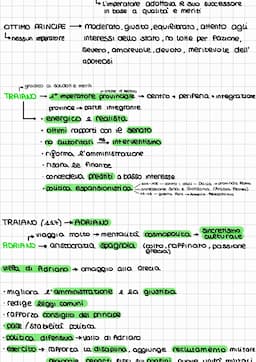 ↳ l'imperatore adottava il suo successore
in base a qualità e meriti
OTTIMO PRINCIPE → moderato, giusto, equilibrato, attento agli
↳ nessun imperatore
interessi dello stato, no lotte per fazione,
severo, amorevole, devoto, meritevole dell'
apoteosi
TRAIANO → 1° imperatore provinciale → centro + periferia = integrazione
province → parte integrante
• energico e realista
• ottimi rapporti con il senato
• no autoritari → interventismo
• riforma l'amministrazione
• risana le finanze
• concedeva prestiti a basso interesse
• politica espansionistica
TRAIANO (117) → ADRIANO
↳ viaggia molto → mentalità cosmopolita → sincretismo
culturale
ADRIANO → aristocrazia spagnola (colto, raffinato, passione
grecia)
villa di Adriano → omaggio alla Grecia
• migliora l'amministrazione e la giustizia
• redige leggi comuni
• rafforza consiglio del principe
• pace / stabilità politica
• politica difensiva → vallo di Adriano
• esercito → rafforza la disciplina, aggiunge reclutamento militare